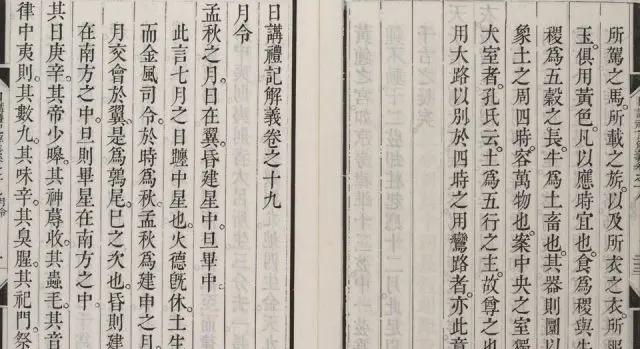 所駕之馬。所載之旂。以及所衣之衣。所服
玉。俱用黃色。凡以應時宜也。食爲稷與牛
稷爲五穀之長。牛爲土畜也。其器則圜以
象土之周四時。容萬物也。案中央之室獨
大室者。孔氏云。土爲五行之主。故尊之也
用大路。以別於四時之用鸞路者。亦此意
日講禮記解義卷之十九
月令
孟秋之月。日在翼。昏建星中。旦畢中。
此言七月之日躔中星也。火德旣休。土生
而金風司令。於時爲秋。孟秋爲建申之月
月交會於翼。是爲鶉尾巳之次也。昏則建
在南方之中。旦則畢星在南方之中。
其日庚辛。其帝少皡。其神蓐收。其蟲毛。其音
律中夷則。其數九。其味辛。其臭腥。其祀門。祭